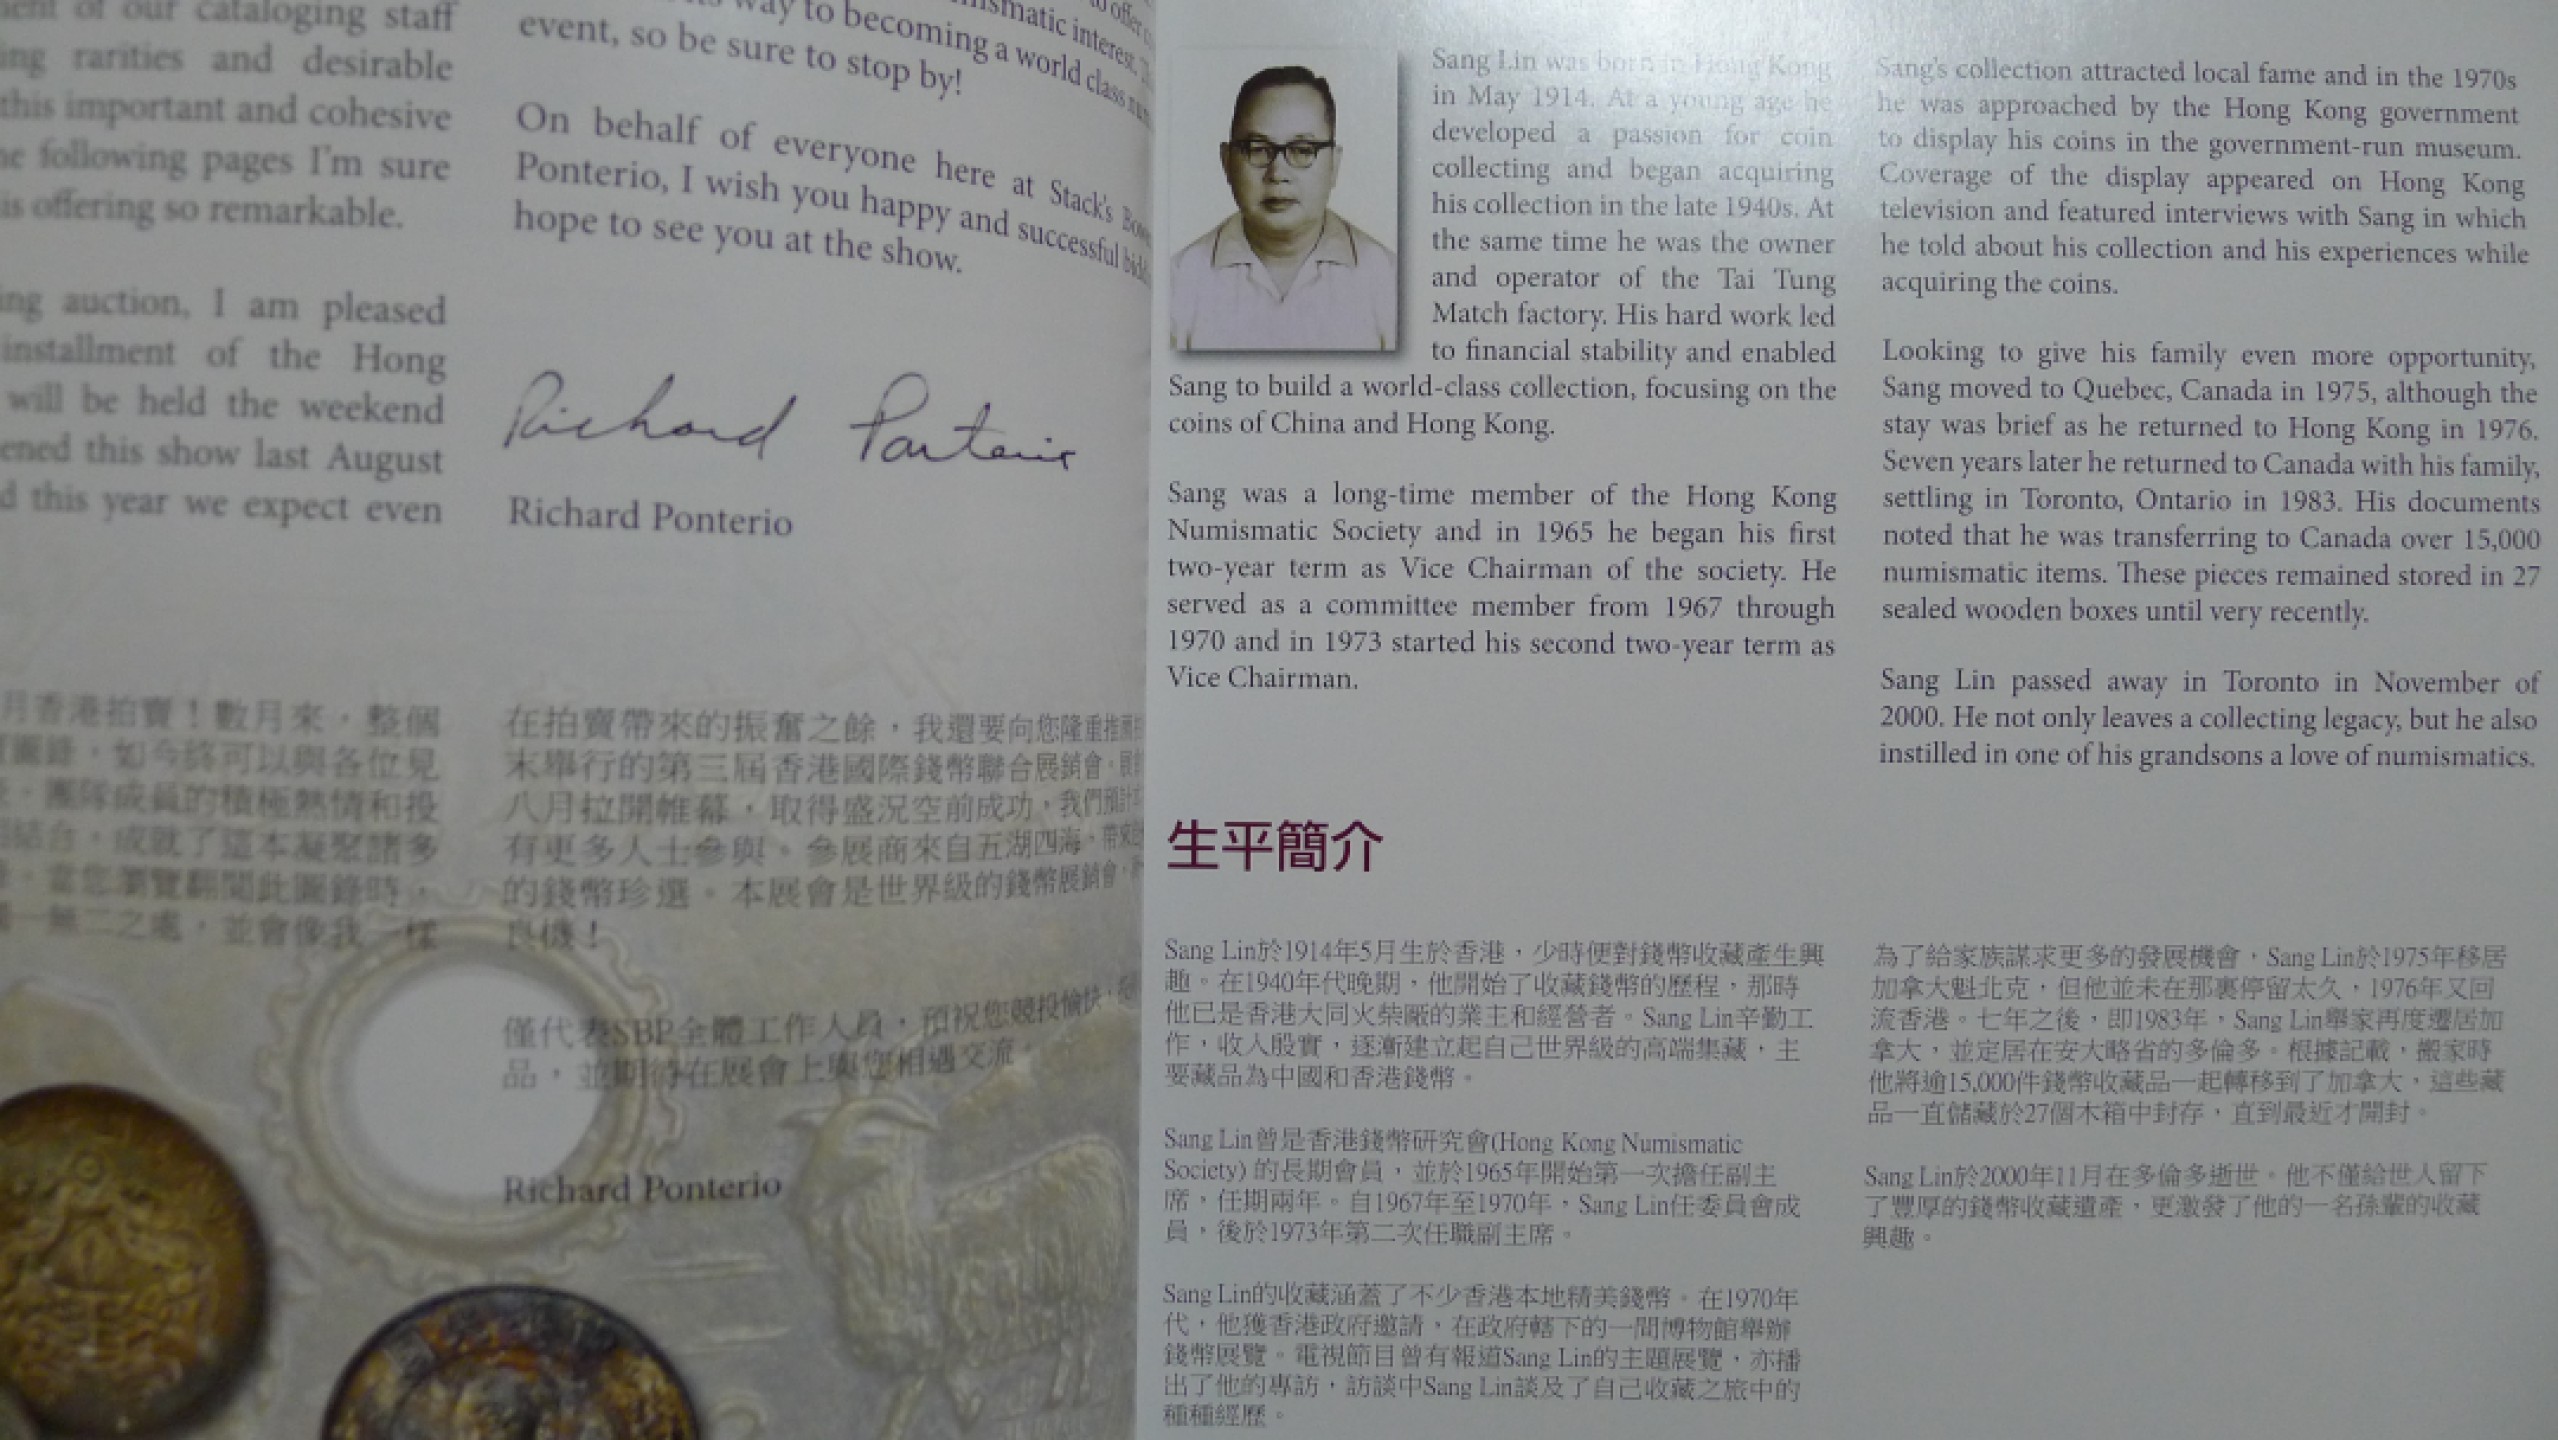 of our cataloging staff
rarities and desirable
this important and cohesive
following pages I'm sure
is offering so remarkable.
auction, I am pleased
installment of the Hong
will be held the weekend
this show last August
this year we expect even
way to becoming a world class
event, so be sure to stop by!
On behalf of everyone here at Stack's
Ponterio, I wish you happy and successful
hope to see you at the show.
Richard Ponterio
Richard Ponterio
月香港拍賣！數月來，整個
如今終可以與各位見
團隊成員的積極熱情和投
成就了這本凝聚諸多
當您瀏覽翻閱此圖錄時，
無二之處，並會像我一樣
在拍賣帶來的振奮之餘，我還要向您隆重推薦
末舉行的第三屆香港國際錢幣聯合展銷會，
八月拉開帷幕，取得盛況空前成功，我們預計
有更多人士參與。參展商來自五湖四海，帶來
的錢幣珍選。本展會是世界級的錢幣展銷會，
良機！
僅代表SBP全體工作人員，預祝您競投愉快，
品，並期待在展會上與您相遇交流。
Richard Ponterio
Sang Lin was born in Hong Kong
in May 1914. At a young age he
developed a passion for coin
collecting and began acquiring
his collection in the late 1940s. At
the same time he was the owner
and operator of the Tai Tung
Match factory. His hard work led
to financial stability and enabled
Sang to build a world-class collection, focusing on the
coins of China and Hong Kong.
Sang was a long-time member of the Hong Kong
Numismatic Society and in 1965 he began his first
two-year term as Vice Chairman of the society. He
served as a committee member from 1967 through
1970 and in 1973 started his second two-year term as
Vice Chairman.
Sang's collection attracted local fame and in the 1970s
he was approached by the Hong Kong government
to display his coins in the government-run museum.
Coverage of the display appeared on Hong Kong
television and featured interviews with Sang in which
he told about his collection and his experiences while
acquiring the coins.
Looking to give his family even more opportunity,
Sang moved to Quebec, Canada in 1975, although the
stay was brief as he returned to Hong Kong in 1976.
Seven years later he returned to Canada with his family,
settling in Toronto, Ontario in 1983. His documents
noted that he was transferring to Canada over 15,000
numismatic items. These pieces remained stored in 27
sealed wooden boxes until very recently.
Sang Lin passed away in Toronto in November of
2000. He not only leaves a collecting legacy, but he also
instilled in one of his grandsons a love of numismatics.
生平簡介
Sang Lin於1914年5月生於香港，少時便對錢幣收藏產生興
趣。在1940年代晚期，他開始了收藏錢幣的歷程，那時
他已是香港大同火柴廠的業主和經營者。Sang Lin辛勤工
作，收入殷實，逐漸建立起自己世界級的高端集藏，主
要藏品為中國和香港錢幣。
Sang Lin曾是香港錢幣研究會(Hong Kong Numismatic
Society) 的長期會員，並於1965年開始第一次擔任副主
席，任期兩年。自1967年至1970年，Sang Lin任委員會成
員，後於1973年第二次任職副主席。
Sang Lin的收藏涵蓋了不少香港本地精美錢幣。在1970年
代，他獲香港政府邀請，在政府轄下的一間博物館舉辦
錢幣展覽。電視節目曾有報道Sang Lin的主題展覽，亦播
出了他的專訪，訪談中Sang Lin談及了自己收藏之旅中的
種種經歷。
為了給家族謀求更多的發展機會，Sang Lin於1975年移居
加拿大魁北克，但他並未在那裏停留太久，1976年又回
流香港。七年之後，即1983年，Sang Lin舉家再度遷居加
拿大，並定居在安大略省的多倫多。根據記載，搬家時
他將逾15,000件錢幣收藏品一起轉移到了加拿大，這些藏
品一直儲藏於27個木箱中封存，直到最近才開封。
Sang Lin於2000年11月在多倫多逝世。他不僅給世人留下
了豐厚的錢幣收藏遺產，更激發了他的一名孫輩的收藏
興趣。